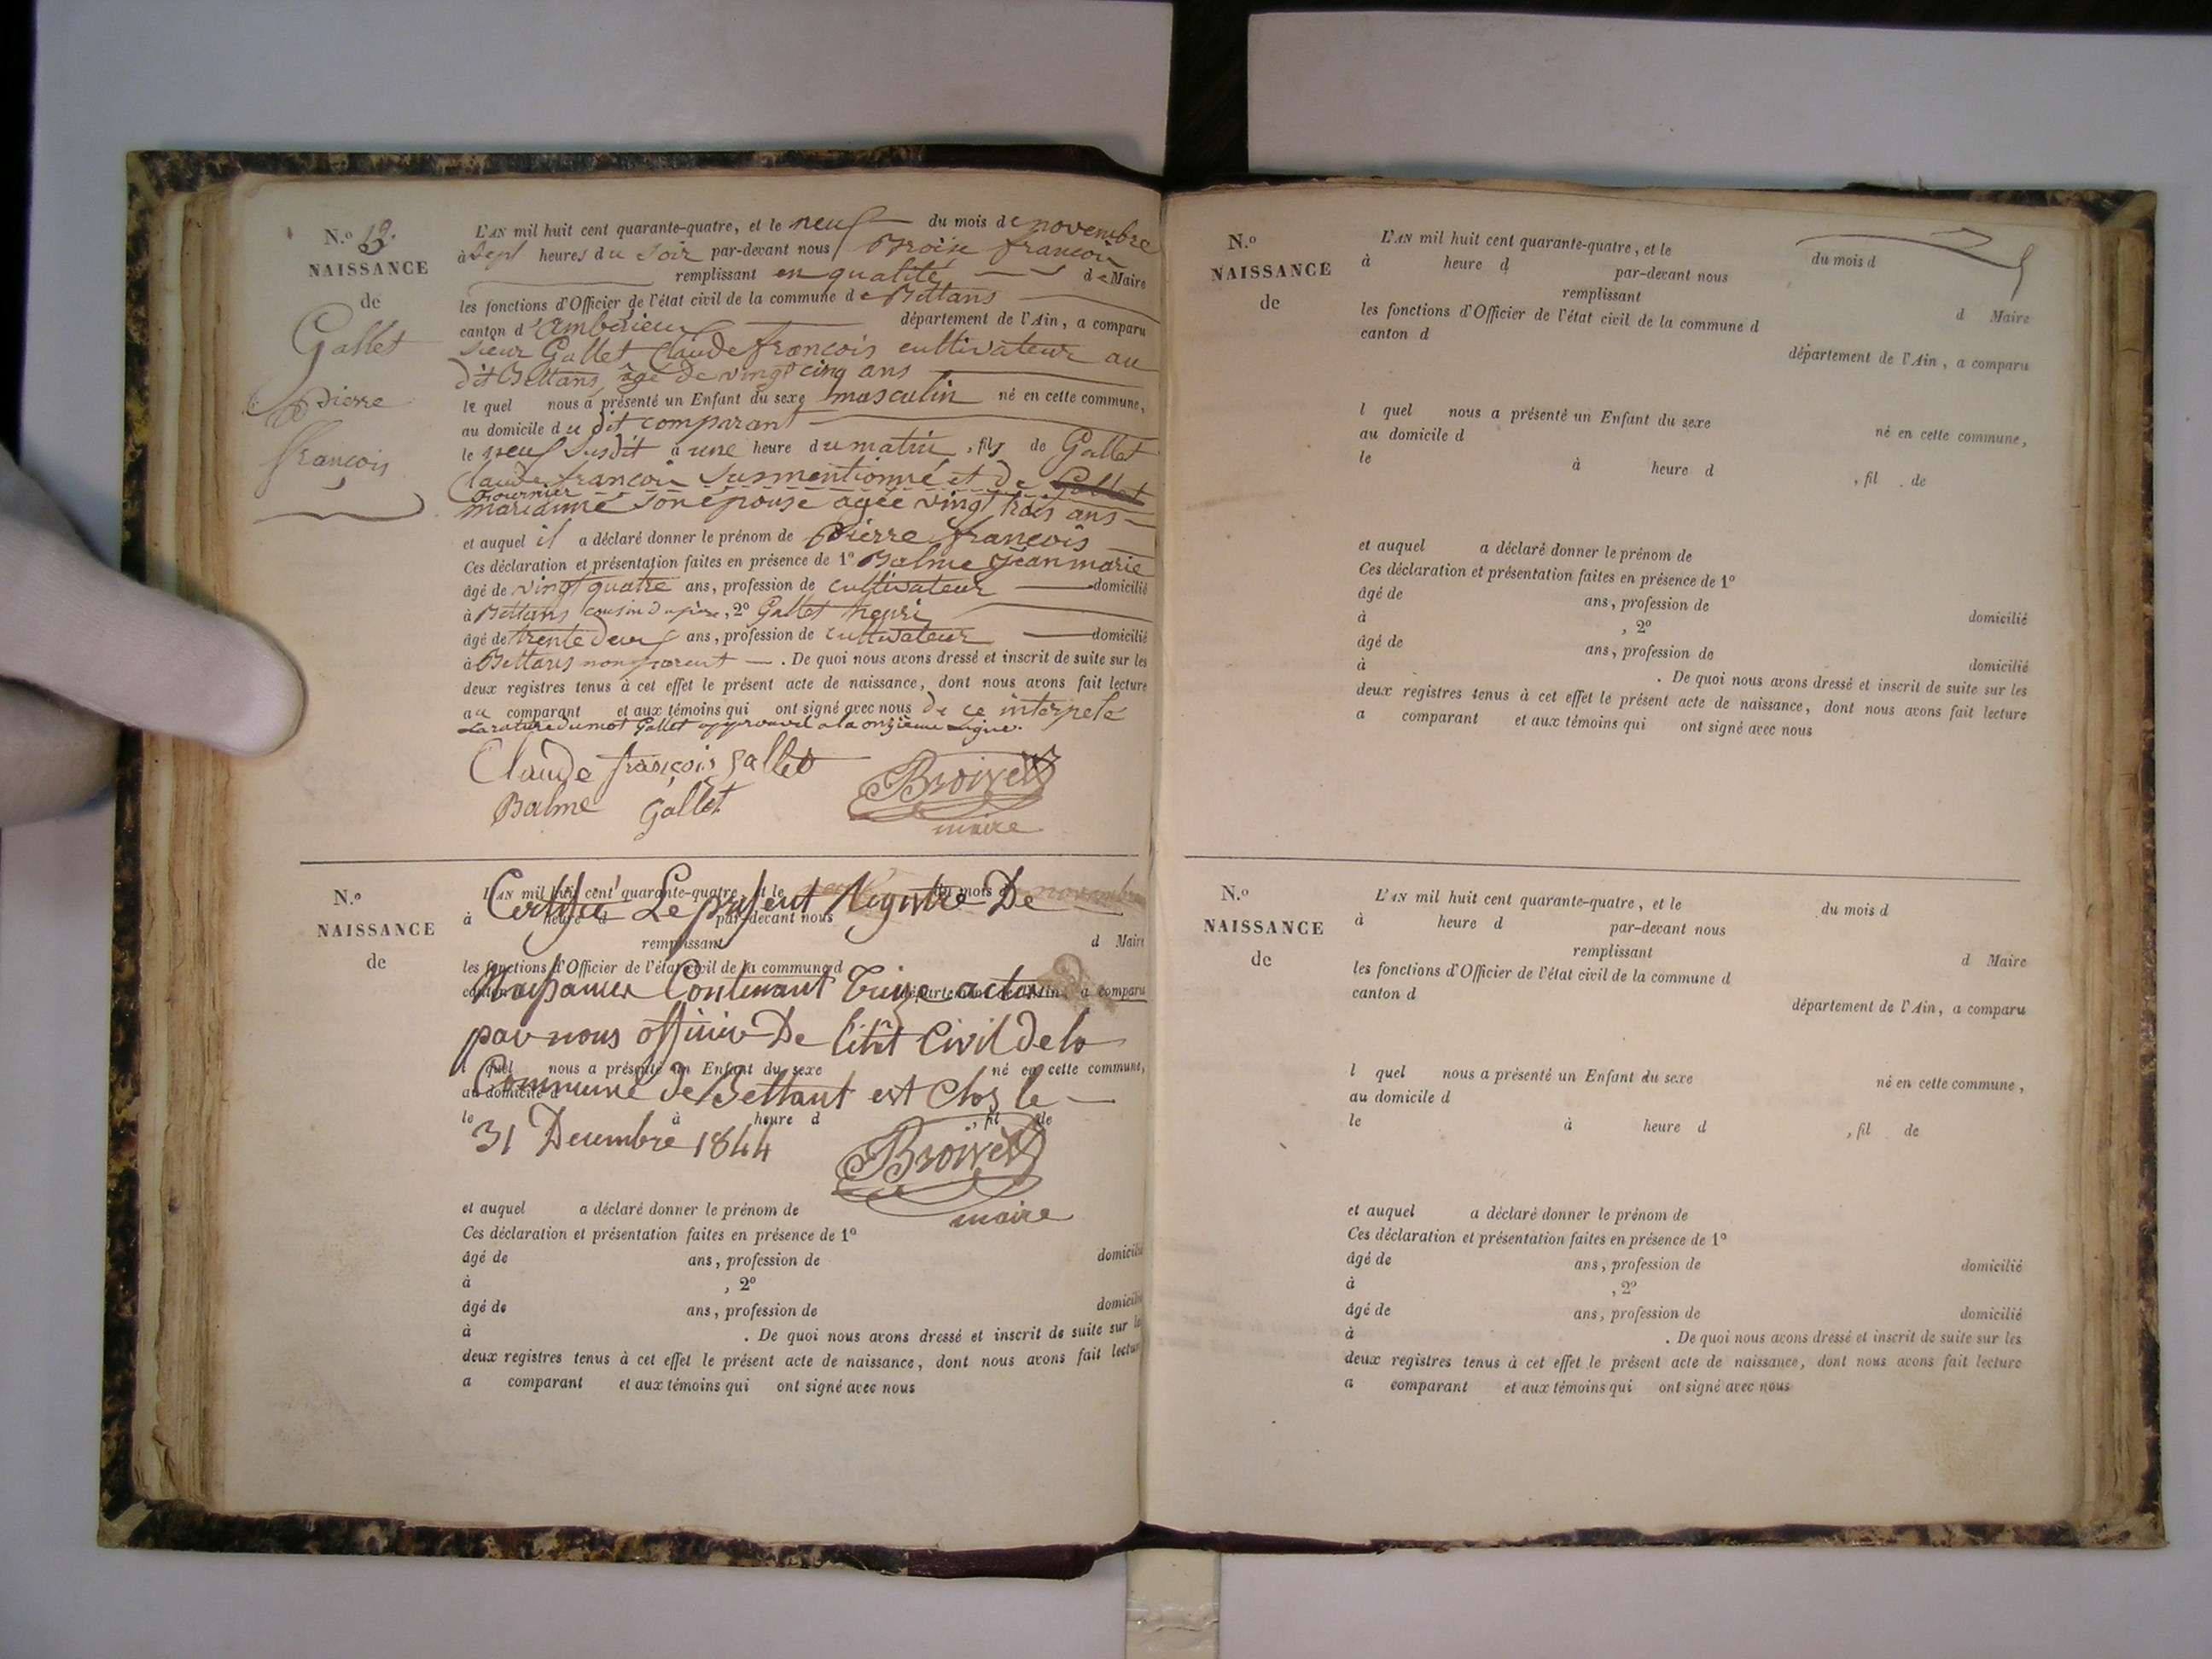 N.o 13.
NAISSANCE
de
Gallet
Pierre
françois
L'AN mil huit cent quarante-quatre, et le neuf du mois de novembre
à sept heures du soir par-devant nous Broise françois
remplissant en qualité de Maire
les fonctions d'Officier de l'état civil de la commune de Bettans
canton d'amberieux département de l'Ain, a comparu
sieur Gallet Claude françois cultivateur au
dit Bettans, âgé de vingt cinq ans
le quel nous a présenté un Enfant du sexe masculin né en cette commune,
au domicile du dit comparant
le neuf susdit à une heure du matin, fils de Gallet
Claude françois susmentionné et de Gallet
fournier
marianne son épouse agée vingt trois ans
et auquel il a déclaré donner le prénom de Pierre françois
Ces déclaration et présentation faites en présence de 1o Balme Jean marie
âgé de vingt quatre ans, profession de cultivateur domicilié
à Bettans cousin du père, 2o Gallet henri
âgé de trente deux ans, profession de cultivateur domicilié
à Bettans non parent. De quoi nous avons dressé et inscrit de suite sur les
deux registres tenus à cet effet le présent acte de naissance, dont nous avons fait lecture
au comparant et aux témoins qui ont signé avec nous de ce interpelé
La rature du mot Gallet approuvée a la onzieme Ligne.
Claude françois Gallet
Balme Gallet
maire
N.o
NAISSANCE
de
L'AN mil huit cent quarante-quatre, et le neuf du mois de novembre
Certifié Le présent Registre De
à heure d par-devant nous
remplissant d Maire
les fonctions d'Officier de l'état civil de la commune d
canton d département de l'Ain, a comparu
Naissances Contenant treize actes
par nous officier De l'état Civil de la
l quel nous a présenté un Enfant du sexe né en cette commune,
Commune de Bettant est Clos le
au domicile d
le à heure d , fil de
31 Decembre 1844
maire
et auquel a déclaré donner le prénom de
Ces déclaration et présentation faites en présence de 1o
âgé de ans, profession de domicilié
à , 2o
âgé de ans, profession de domicilié
à . De quoi nous avons dressé et inscrit de suite sur les
deux registres tenus à cet effet le présent acte de naissance, dont nous avons fait lecture
a comparant et aux témoins qui ont signé avec nous
N.o
NAISSANCE
de
L'AN mil huit cent quarante-quatre, et le du mois d
à heure d par-devant nous
remplissant d Maire
les fonctions d'Officier de l'état civil de la commune d
canton d département de l'Ain, a comparu
l quel nous a présenté un Enfant du sexe né en cette commune,
au domicile d
le à heure d , fil de
et auquel a déclaré donner le prénom de
Ces déclaration et présentation faites en présence de 1o
âgé de ans, profession de domicilié
à , 2o
âgé de ans, profession de domicilié
à . De quoi nous avons dressé et inscrit de suite sur les
deux registres tenus à cet effet le présent acte de naissance, dont nous avons fait lecture
a comparant et aux témoins qui ont signé avec nous
N.o
NAISSANCE
de
L'AN mil huit cent quarante-quatre, et le du mois d
à heure d par-devant nous
remplissant d Maire
les fonctions d'Officier de l'état civil de la commune d
canton d département de l'Ain, a comparu
l quel nous a présenté un Enfant du sexe né en cette commune,
au domicile d
le à heure d , fil de
et auquel a déclaré donner le prénom de
Ces déclaration et présentation faites en présence de 1o
âgé de ans, profession de domicilié
à , 2o
âgé de ans, profession de domicilié
à . De quoi nous avons dressé et inscrit de suite sur les
deux registres tenus à cet effet le présent acte de naissance, dont nous avons fait lecture
a comparant et aux témoins qui ont signé avec nous